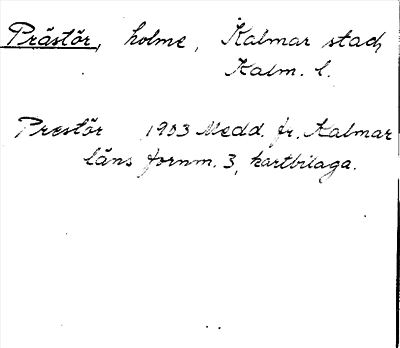 Prästör, holme, Kalmar stad,
Kalm. l.
Prestör 1903 Medd. fr. Kalmar
läns fornm. 3, kartbilaga.